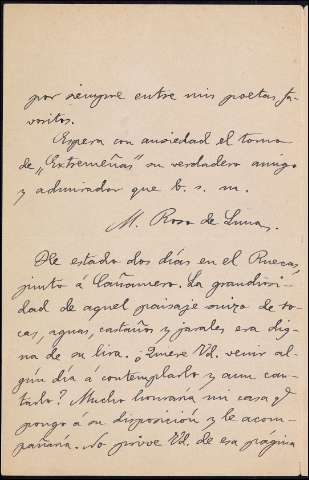 por siempre entre mis poetas fa-
voritos.
Espera con ansiedad el tomo
de „Extremeñas" su verdadero amigo
y admirador que b. s. m.
M. Roso de Luna.
He estado dos días en el Ruecas,
junto á Cañamero. La grandiosi-
dad de aquel paisaje suizo de ro-
cas, aguas, castaños y jarales, era dig-
na de su lira. ¿Quiere Vd. venir al-
gún día á contemplarlo y aun can-
tarlo? Mucho honraría mi casa qe
pongo á su disposición y le acom-
pañaría. No prive Vd. de esa página